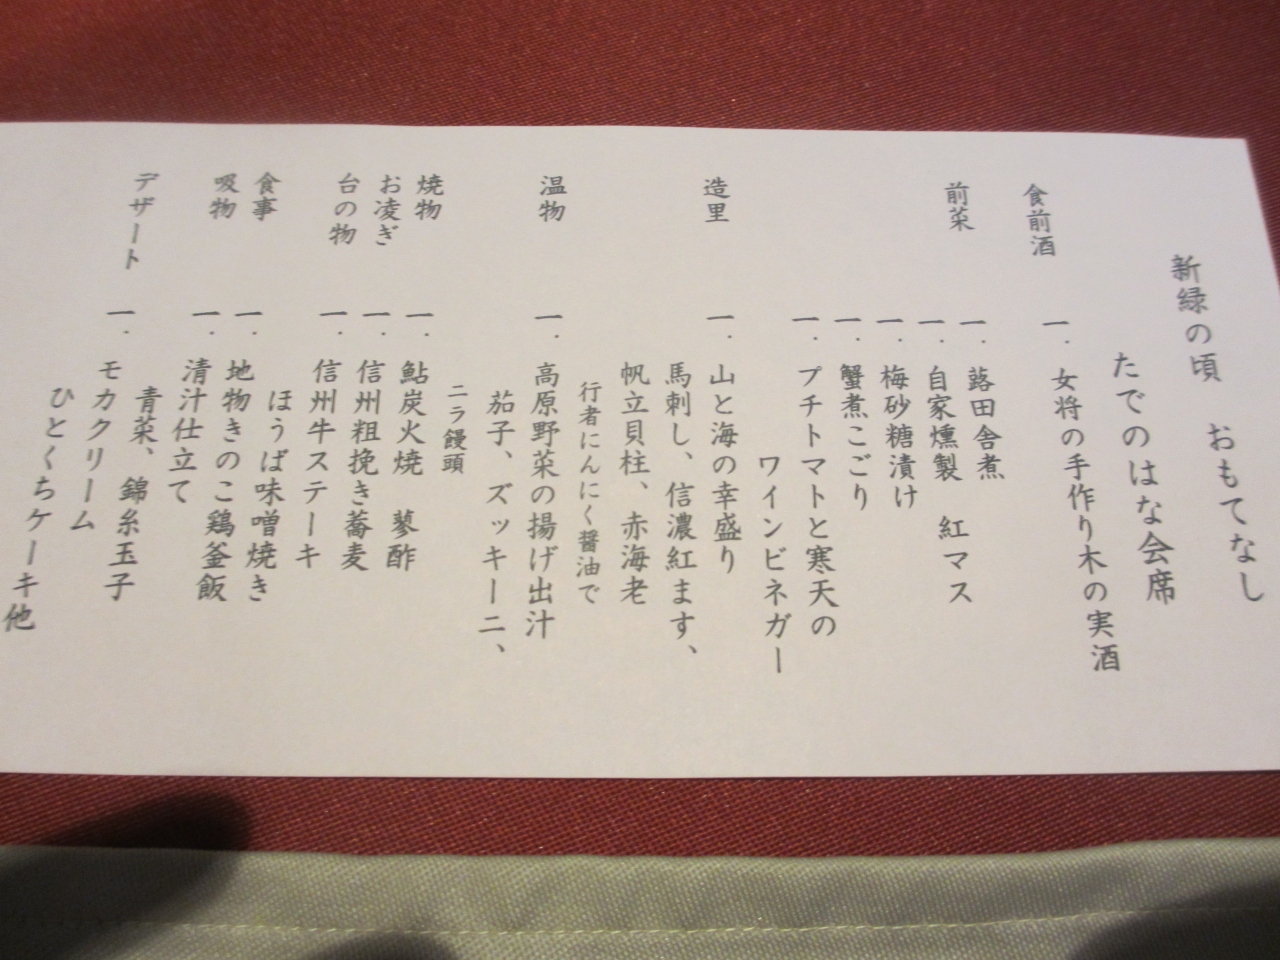 新緑の頃　おもてなし
たでのはな会席
食前酒　一．女将の手作り木の実酒
前菜　一．蕗田舎煮
一．自家燻製　紅マス
一．梅砂糖漬け
一．蟹煮こごり
一．プチトマトと寒天の
ワインビネガー
造里　一．山と海の幸盛り
馬刺し、信濃紅ます、
帆立貝柱、赤海老
行者にんにく醤油で
温物　一．高原野菜の揚げ出汁
茄子、ズッキーニ、
ニラ饅頭
焼物　一．鮎炭火焼　蓼酢
お凌ぎ　一．信州粗挽き蕎麦
台の物　一．信州牛ステーキ
ほうば味噌焼き
食事　一．地物きのこ鶏釜飯
吸物　一．清汁仕立て
青菜、錦糸玉子
デザート　一．モカクリーム
ひとくちケーキ他